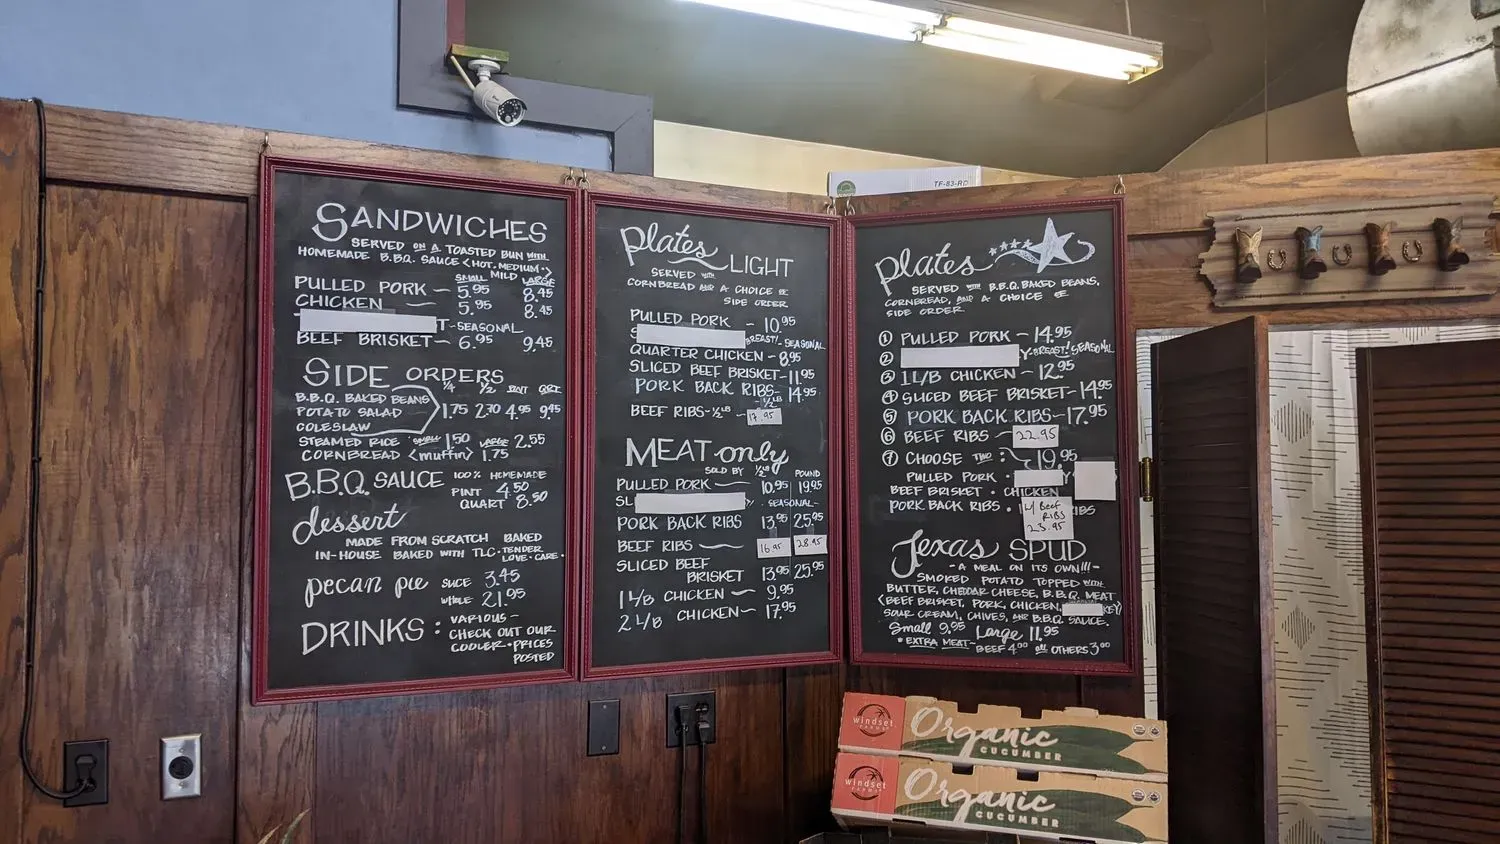 TF-83-RD
SANDWICHES
SERVED ON A TOASTED BUN WITH
HOMEMADE B.B.Q. SAUCE <HOT, MEDIUM,
MILD>
SMALL LARGE
PULLED PORK — 5.95 8.45
CHICKEN — 5.95 8.45
T-SEASONAL
BEEF BRISKET — 6.95 9.45
SIDE ORDERS
1/4 1/2 PINT QRT
B.B.Q. BAKED BEANS
POTATO SALAD 1.75 2.70 4.95 9.45
COLESLAW
STEAMED RICE SMALL 1.50 LARGE 2.55
CORNBREAD <muffin> 1.75
B.B.Q. SAUCE 100% HOMEMADE
PINT 4.50
QUART 8.50
dessert
MADE FROM SCRATCH BAKED
IN-HOUSE BAKED WITH TLC • TENDER
LOVE • CARE •
pecan pie SLICE 3.45
WHOLE 21.95
DRINKS: VARIOUS -
CHECK OUT OUR
COOLER • PRICES
POSTED
Plates LIGHT
SERVED WITH
CORNBREAD AND A CHOICE OF
SIDE ORDER
PULLED PORK — 10.95
BREAST! - SEASONAL
QUARTER CHICKEN — 8.95
SLICED BEEF BRISKET — 11.95
PORK BACK RIBS — 14.95
1/2 LB
BEEF RIBS - 1/2 LB — 17.95
MEAT only
SOLD BY 1/2 LB POUND
PULLED PORK — 10.95 19.95
SL
SEASONAL
PORK BACK RIBS 13.95 25.95
BEEF RIBS — 16.95 28.95
SLICED BEEF
BRISKET 13.95 25.95
1 L/B CHICKEN — 9.95
2 L/B CHICKEN — 17.95
Plates
SERVED WITH B.B.Q. BAKED BEANS,
CORNBREAD, AND A CHOICE OF
SIDE ORDER
① PULLED PORK — 14.95
② Y-BREAST! SEASONAL
③ 1 L/B CHICKEN — 12.95
④ SLICED BEEF BRISKET — 14.95
⑤ PORK BACK RIBS — 17.95
⑥ BEEF RIBS — 22.95
⑦ CHOOSE TWO: — 19.95
PULLED PORK • Y
BEEF BRISKET • CHICKEN
PORK BACK RIBS • RIBS
w/ Beef
RIBS
23.95
Texas SPUD
- A MEAL ON ITS OWN!!! -
SMOKED POTATO TOPPED WITH
BUTTER, CHEDDAR CHEESE, B.B.Q. MEAT
(BEEF BRISKET, PORK, CHICKEN, KEY)
SOUR CREAM, CHIVES, AND B.B.Q. SAUCE.
Small 9.95 Large 11.95
* EXTRA MEAT - BEEF 4.00 all OTHERS 3.00
windset
FARMS
Organic
CUCUMBER
windset
FARMS
Organic
CUCUMBER